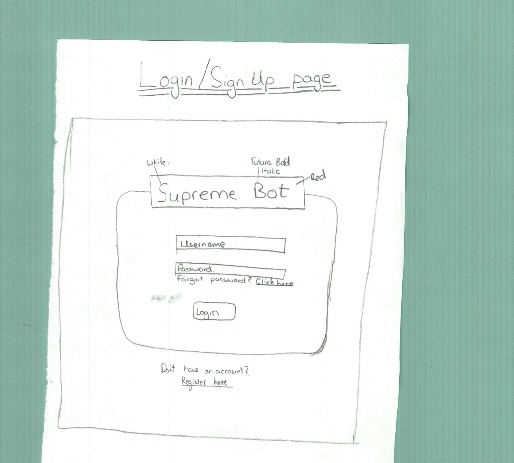 Login/Sign Up page
White.
Futura Bold
Italic
Red
Supreme Bot
Username
Password
Forgot password? Click here
Login
Don't have an account?
Register here